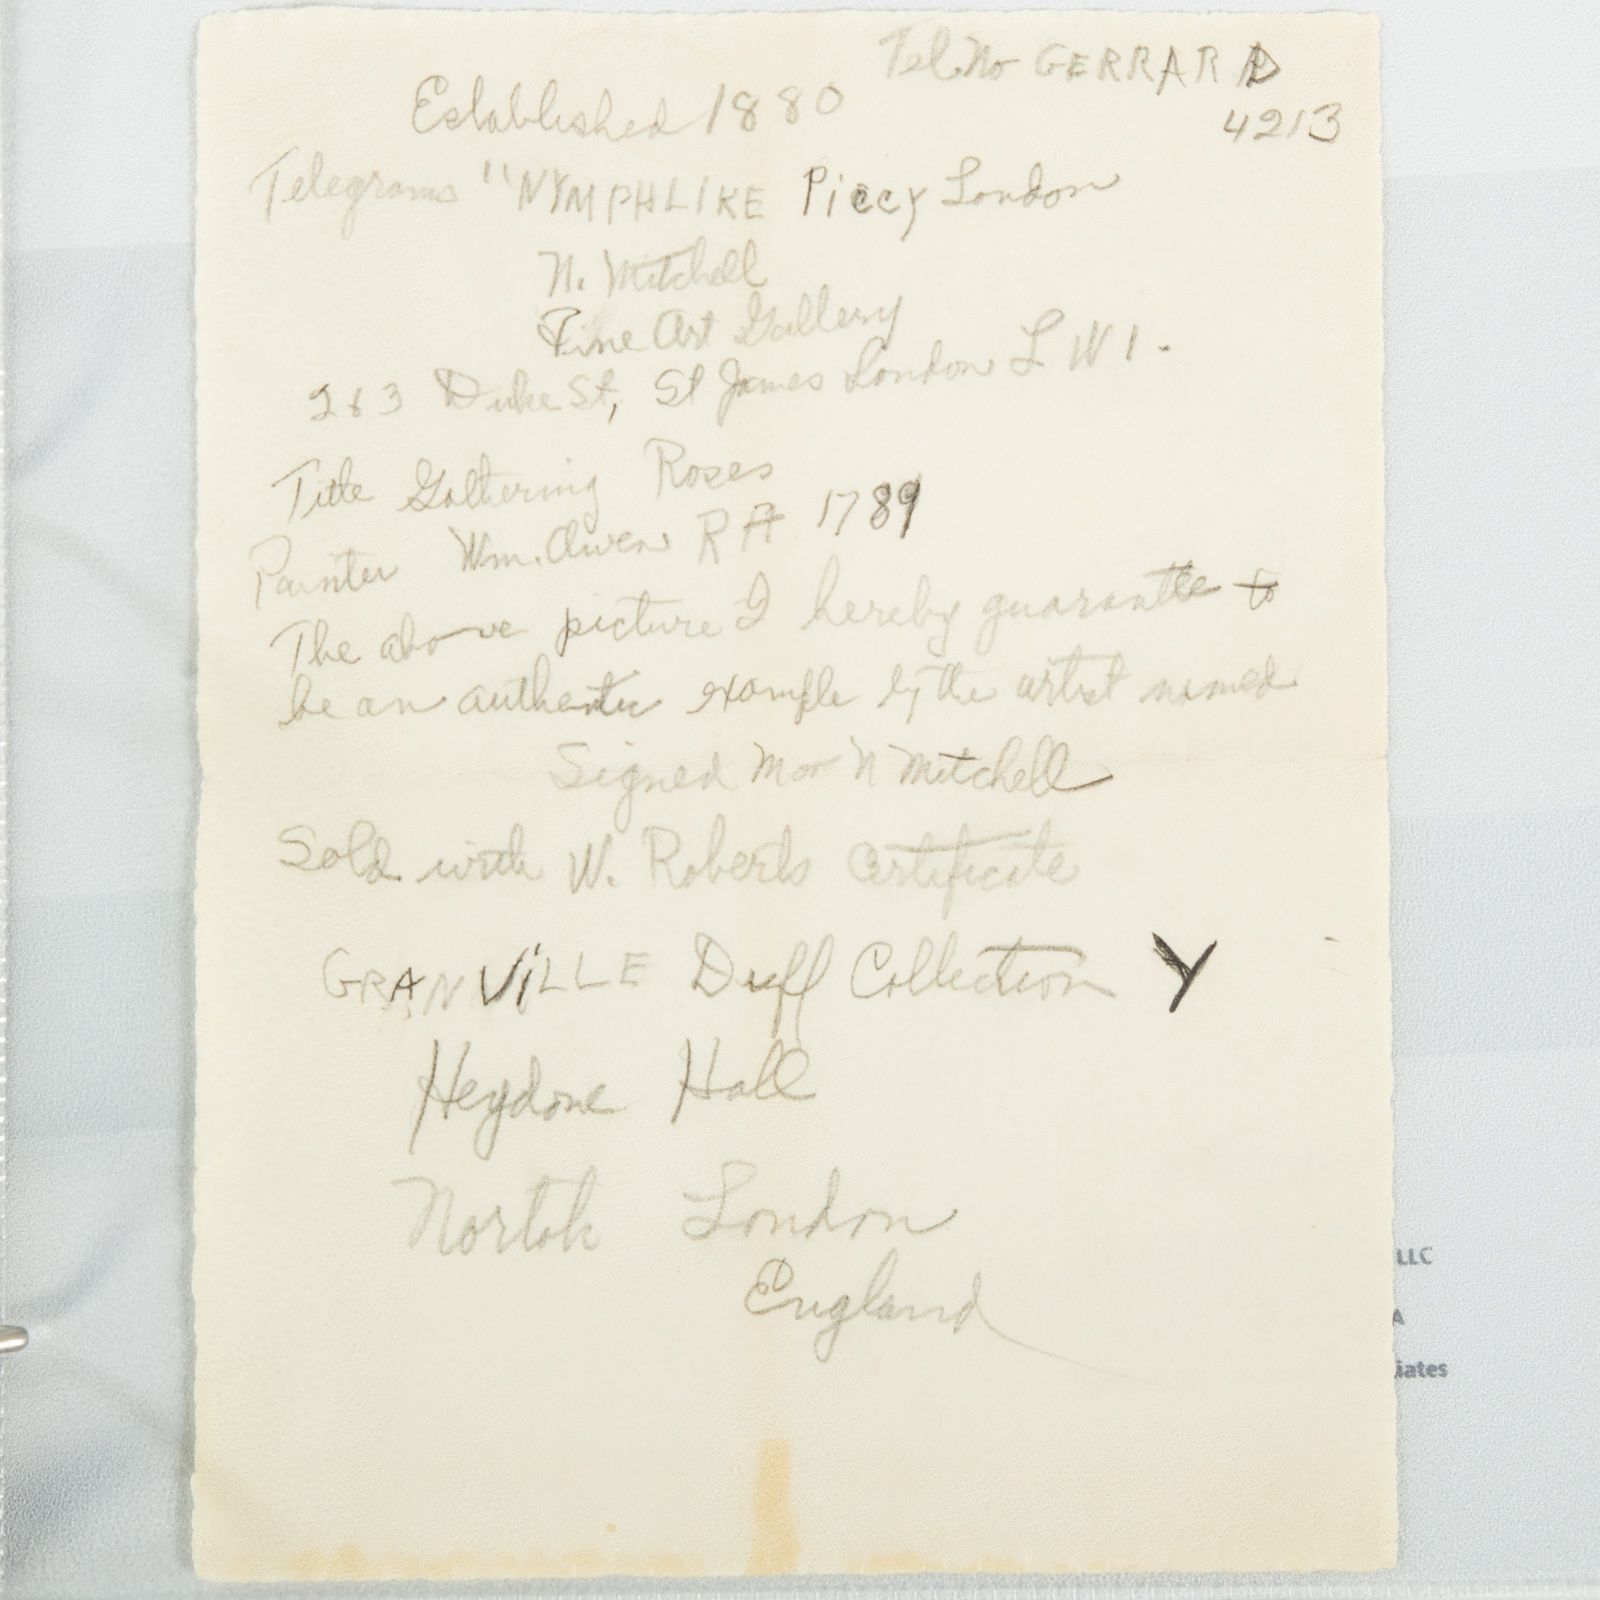 Tel. No GERRARD
4213
Established 1880
Telegrams "NYMPHLIKE Piccy London
N. Mitchell
Fine Art Gallery
2 & 3 Duke St, St James London S W 1.
Title Gathering Roses
Painter Wm. Owen R A 1789
The above picture I hereby guarantee to
be an authentic example by the artist named
Signed N Mitchell
Sold with W. Roberts Certificate
GRANVILLE Duff Collection Y
Heydone Hall
North London
England
LLC
A
iates